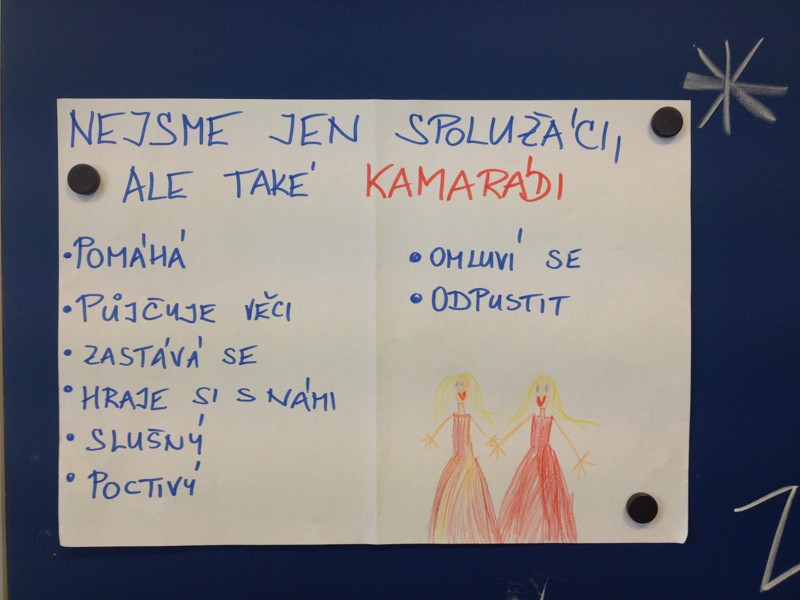 NEJSME JEN SPOLUŽÁCI,
ALE TAKÉ KAMARÁDI
• POMÁHÁ
• PŮJČUJE VĚCI
• ZASTÁVÁ SE
• HRAJE SI S NÁMI
• SLUŠNÝ
• POCTIVÝ
• OMLUVÍ SE
• ODPUSTIT